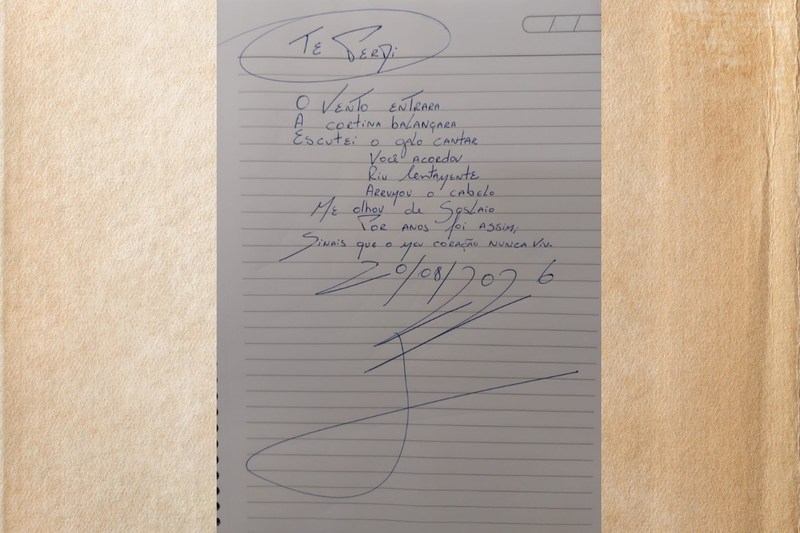 Te Perdi
O Vento entrara
A cortina balançara
Escutei o galo cantar
Você acordou
Riu lentamente
Arrumou o cabelo
Me olhou de Soslaio
Por anos foi assim;
Sinais que o meu coração nunca viu.
20/08/2026